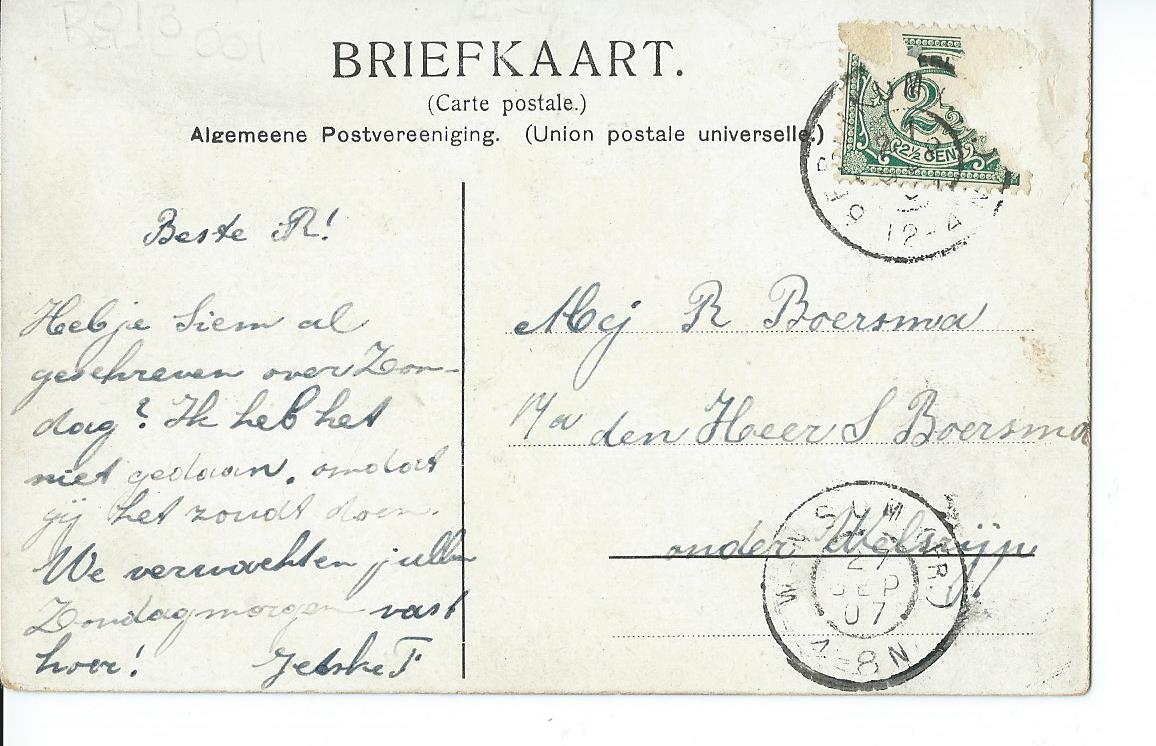 BRIEFKAART.
(Carte postale.)
Algemeene Postvereeniging. (Union postale universelle.)
2½ CENT
12-4
Beste R!
Heb je Siem al
geschreven over Zon-
dag? Ik heb het
niet gedaan, omdat
gij het zoudt doen.
We verwachten jullie
Zondagmorgen vast
hoor! Jetske T
Mej R Boersma
p/a den Heer S Boersma
onder Holwijp
SUM (FR.)
27
SEP
07
7-8N